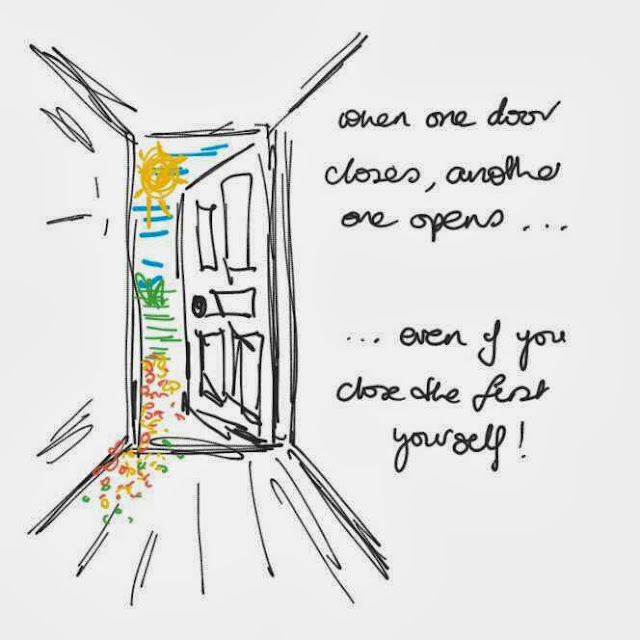 when one door
closes, another
one opens ...
... even if you
close the first
yourself!